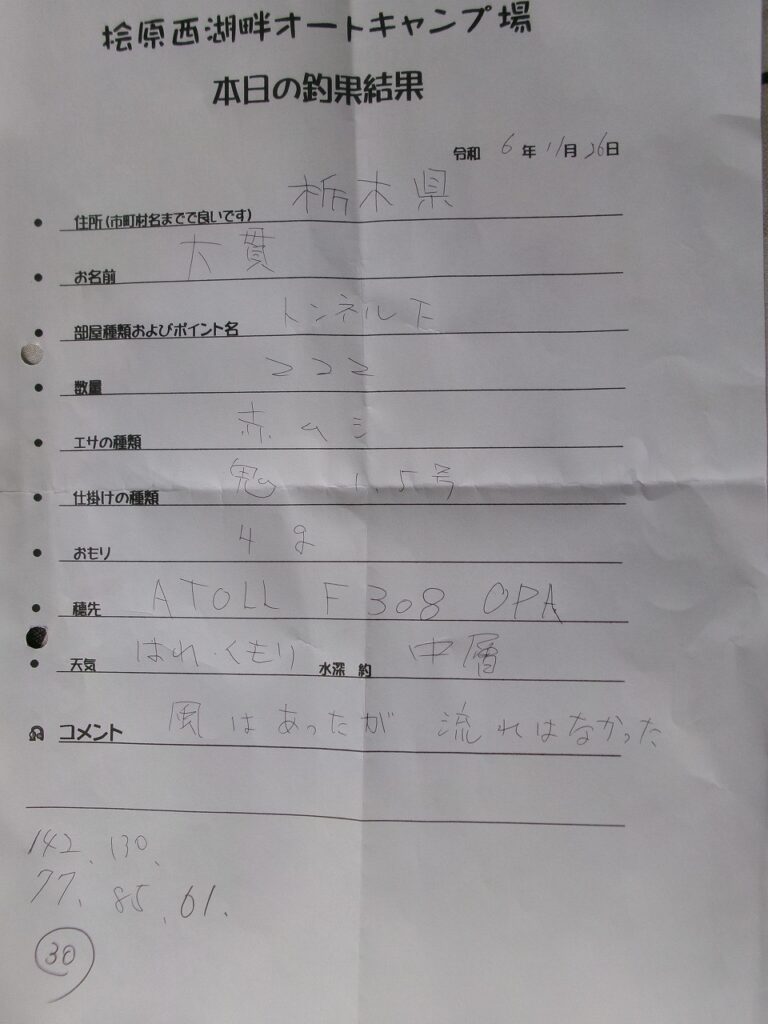 桧原西湖畔オートキャンプ場
本日の釣果結果
令和 6 年 11月 26日
● 住所(市町村名までで良いです) 栃木県
● お名前 大貫
● 部屋種類およびポイント名 トンネル下
● 数量 222
● エサの種類 赤ムシ
● 仕掛けの種類 鬼 1.5号
● おもり 4g
● 穂先 ATOLL F308 OPA
● 天気 はれ・くもり 水深 約 中層
コメント 風はあったが 流れはなかった
142、130、
77、85、61、
30